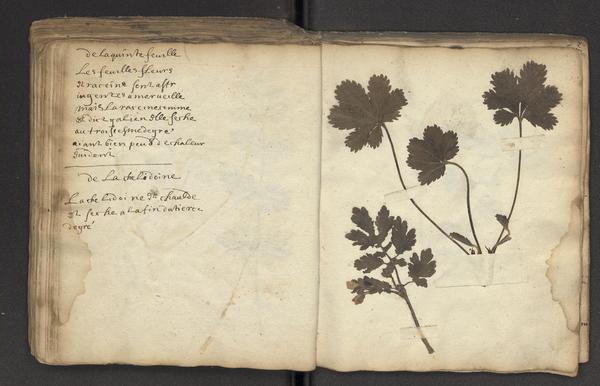 de la quinte feuille
Les feuilles fleurs
et racine sont astr
ingentes a merveille
mais la racine même
et dict galien elle seche
au troisesme degre
aiant bien peu d'echaleur
de La chelidoine
La chelidoine est chaulde
et seche a la fin du tierce
degré